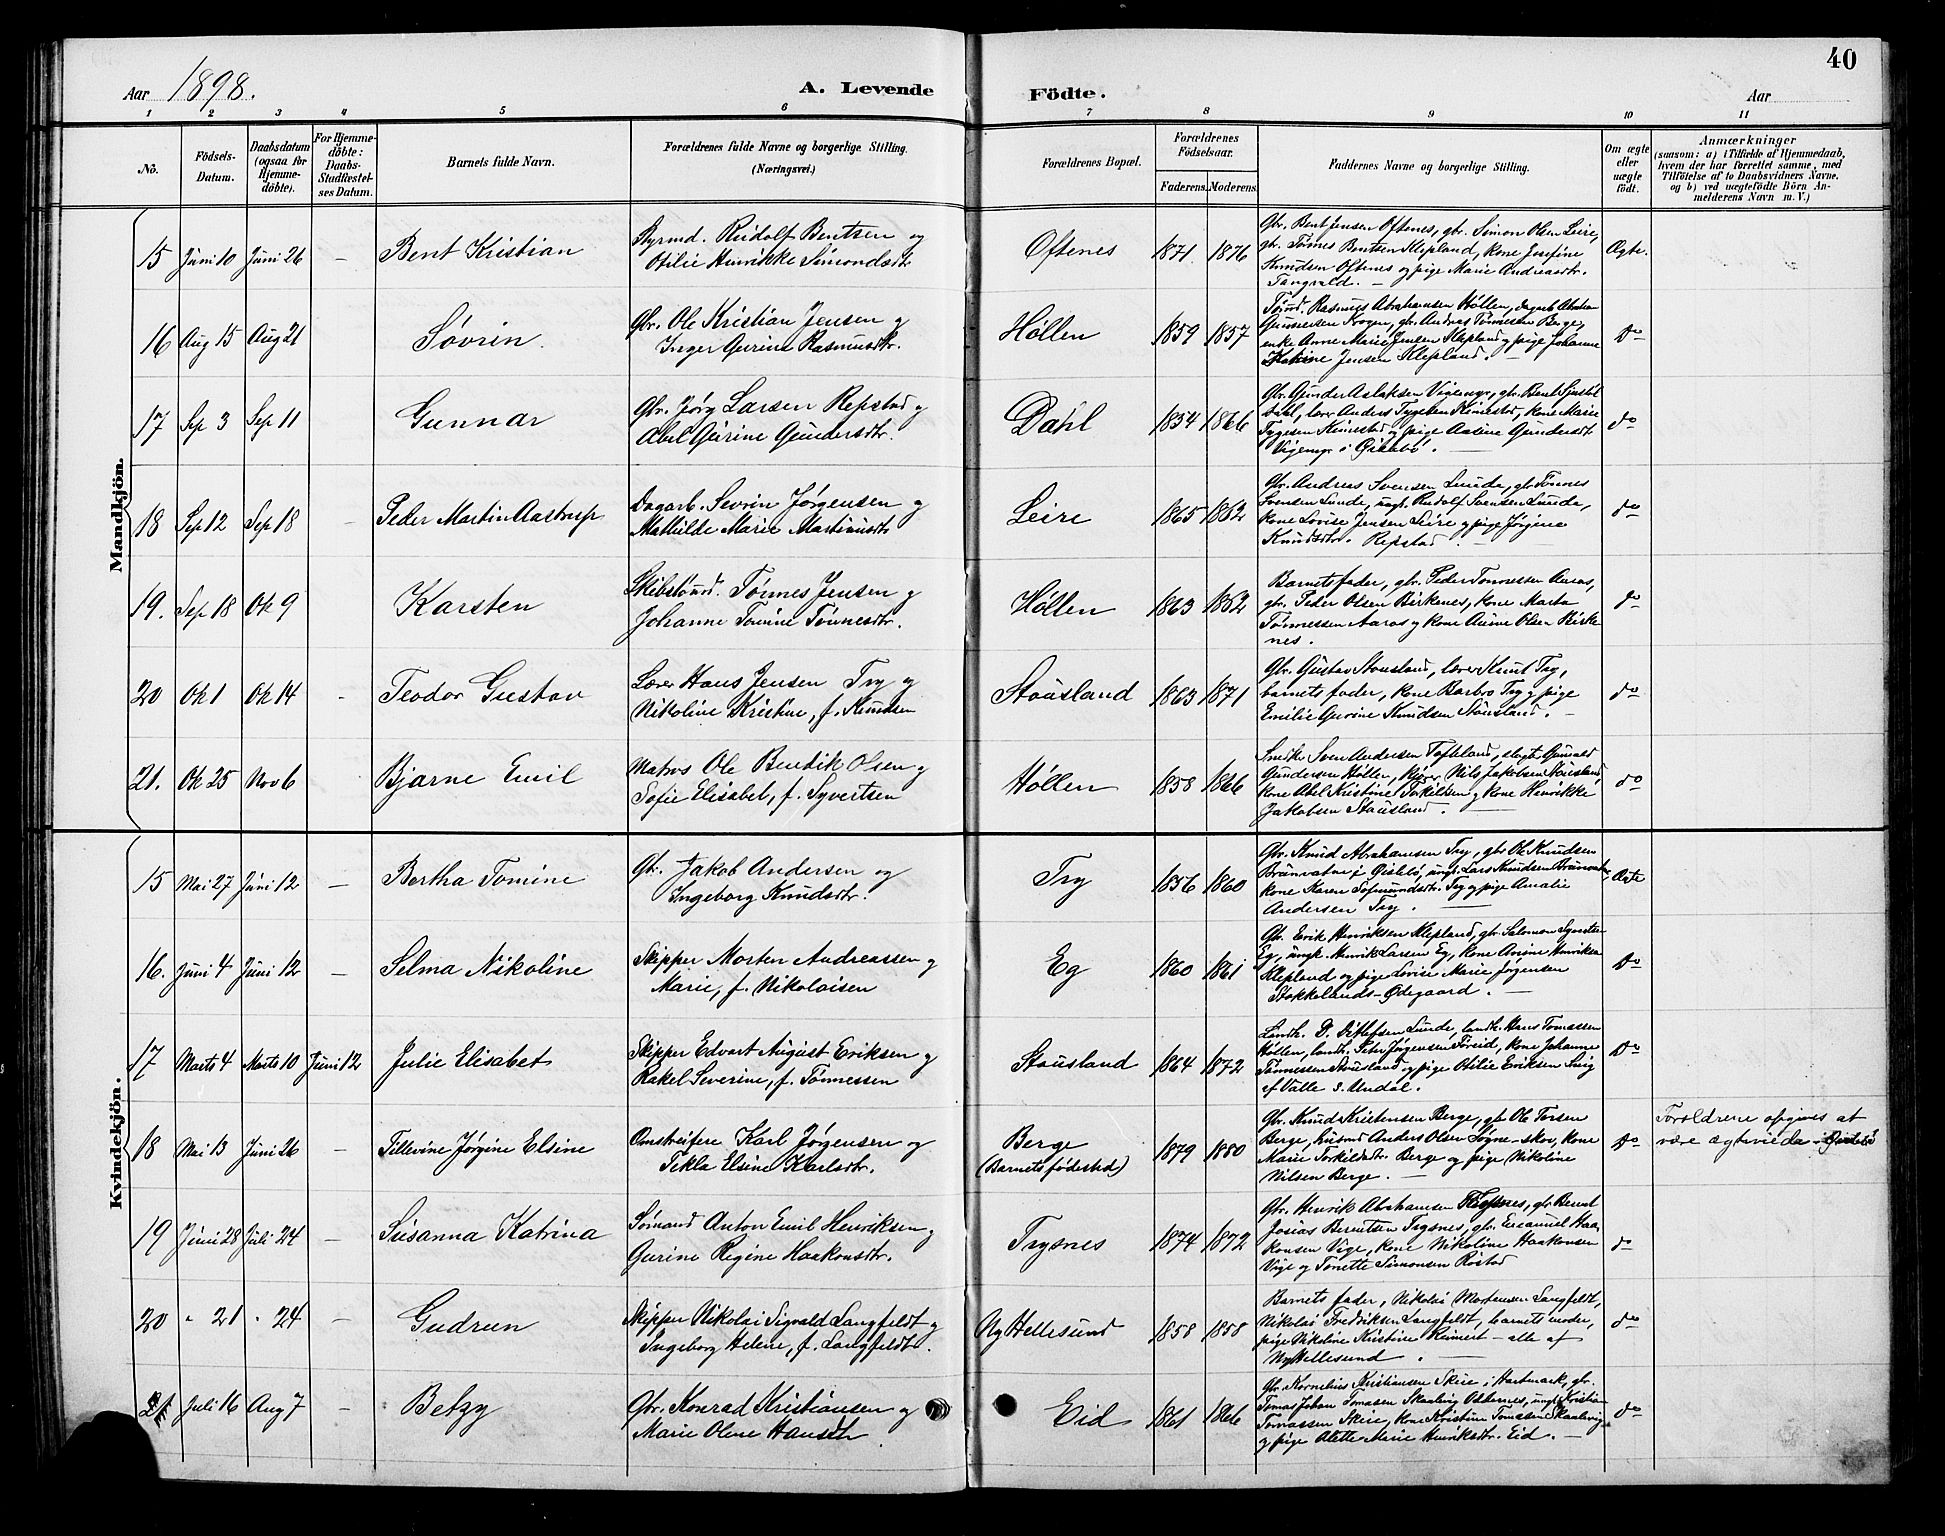 40
Aar 1898.
A. Levende
Födte.
Aar
1 2 3 4 5 6 7 8 9 10 11
No.
Födsels-
Datum.
Daabsdatum
(ogsaa for
Hjemme-
döbte).
For Hjemme-
döbte:
Daabs-
Stadfæstel-
ses Datum.
Barnets fulde Navn.
Forældrenes fulde Navne og borgerlige Stilling.
(Næringsvei.)
Forældrenes Bopæl.
Forældrenes
Födselsaar.
Faderens. Moderens.
Faddernes Navne og borgerlige Stilling.
Om ægte
eller
uægte
födt.
Anmærkninger
(saasom: a) i Tilfælde af Hjemmedaab,
hvem der har forrettet samme, med
Tilföielse af to Daabsvidners Navne,
og b) ved uægtefödte Börn An-
melderens Navn m. V.)
Mandkjön.
15 Juni 10 Juni 26 — Bent Kristian
Styrmd. Rudolf Bentsen og
Otilie Henrikke Simonsdtr
Oftenes 1871. 1876
Gbr. Bent Jensen Oftenes, gbr. Simon Olsen Leire,
gbr. Tønnes Bentsen Klepland, kone Josefine
Knudsen Oftenes og pige Marie Andreasdtr.
Tangvald. —
Ægte.
16 Aug 15 Aug 21 Søvrin.
Gbr. Ole Kristian Jensen og
Inger Gurine Rasmusdtr.
Høllen 1859 1857
Tømd. Rasmus Abrahamsen Høllen, dagarb. Abraham
Gunnersen Krogen, gbr. Andras Tønnesen Berge,
enke Anne Marie Jensen Klepland og pige Johanne
Jensen Klepland. —
Do
17 Sep 3 Sep 11 Gunnar
Gbr. Jørg Larsen Repstad og
Abel Gurine Gundersdtr.
Dahl 1854 1866
Gbr. Gunder Aslaksen Vigemyr, gbr. Bent
Dahl, lærer Anders Tygesen Kinestad, kone Marie
Tygesen Kinestad og pige Aasine Gundersdt.
Vigemyr i Øislebø.
do
18 Sep 12 Sep 18 — Peder Martin Aastrup
Dagarb. Sevrin Jørgensen og
Mathilde Marie Martinusdtr
Leire 1865 1862
Gbr. Andreas Svensen Lunde, gb. Tønnes
Svensen Lunde, ungk. Rudolf Svensen Lunde,
kone Lovise Jensen Leire og pige Jørgine
Knudsdtr. Repstad. —
do
19. Sep 18 Ok 9 Karsten
Skibstømd. Tønnes Jensen og
Johanne Tomine Tønnesdtr.
Høllen 1863 1862
Barnets fader, gbr. Peder Tønnessen Aaros,
gbr. Peder Olsen Birkenes, kone Marta
Tønnessen Aaros og kone Anine Olsen Birke
nes.
do
20 Ok 1 Ok 14 — Teodor Gustav
Lærer Hans Jensen Try og
Nikoline Kristine, f. Knudsen
Stousland 1863 1871
Gbr. Gustav Stousland, lærer Knut Try,
barnets fader, kone Barbro Try og pige
Emilie Gurine Knudsen Stousland. —
do
21. Ok 25 Nov 6 Bjarne Emil
Matros Ole Bendik Olsen og
Sofie Elisabet, f. Syvertsen
Høllen 1858 1866
Snedk. Sven Andersen Tofteland, slagt. Gunvald
Gundersen Høllen, Nils Jakobsen Stousland,
kone Abel Kristine Torkildsen og kone Henrikke
Jakobsen Stousland. —
do
Kvindekjön.
15 Mai 27 Juni 12 — Bertha Tomine
Gbr. Jakob Andersen og
Ingeborg Knudsdtr.
Try 1856 1860
Gbr. Knud Abrahamsen Try, gbr. Ole Knudsen
Brunvatne i Øislebø, ungk. Lars Knudsen Brunvatne,
kone Karen Sofmundsdtr. Try og pige Amalie
Andersen Try. —
Ægte
16. Juni 4 Juni 12 — Selma Nikoline
Skipper Morten Andreassen og
Marie, f. Nikolaisen
Eg 1860 1861
Gbr. Erik Henriksen Klepland, gbr. Salomon Syvertsen
Eg, ungk. Henrik Larsen Eg, kone Anine Henriksen
Klepland og pige Lovise Marie Jørgensen
Stokkelands-Ødegaard. —
Do
17 Marts 4 Marts 10 Juni 12 Julie Elisabet
Skipper Edvart August Eriksen og
Rakel Severine, f. Tønnessen
Stousland 1864 1872
Landh. D. Ditlefsen Lunde, landh. Hans Tomassen
Høllen, landh. Peter Jørgensen Føreid, kone Johanne
Tønnessen Stousland og pige Otilie Eriksen
af Valle s. Undal.
Do
18 Mai 13 Juni 26 — Tellevine Jørgine Elsine
Omstreifere Karl Jørgensen og
Tekla Elsine Karlsdtr.
Berge
(Barnets fødested)
1879 1880
Gbr. Knud Kristensen Berge, gbr. Ole Torsen
Berge, husmd Anders Olsen Søgne-skov, kone
Marie Torkildsdtr. Berge og pige Nikoline
Nilsen Berge. —
Do
Forældrene opgives at
være ægteviede i Øislebø
19 Juni 28 Juli 24 — Susanna Katrina
Sømand Anton Emil Henriksen og
Gurine Regine Haakonsdtr.
Trysnes 1874 1872
Gbr. Henrik Abrahamsen Trysnes, gbr. Berent
Josias Berntsen Trysnes, gbr. Emanuel Haa-
konsen Vige, kone Nikoline Haakonsen
Vige og Tonette Simonsen Røstad
do
20 " 21 " 24 — Gudrun
Skipper Nikolai Sigvald Langfeldt og
Ingeborg Helene, f. Langfeldt.
Ny Hellesund 1858 1858
Barnets fader, Nikolai Mortensen Langfeldt,
Nikolai Fredriksen Langfeldt, barnets moder,
pige Nikoline Kristine Reinert — alle af
Ny Hellesund. —
do
21 Juli 16 Aug 7 — Betzy
Gbr. Konrad Kristiansen og
Marie Olene Hansdtr
Eid 1861 1866
Gbr. Kornelius Kristiansen Skeie i Hartmark, gbr.
Tomas Johan Tomasen Skaalevig Oddernes, ungk. Kristian
Tomassen Skeie, kone Kristine Tomasen Skaalevig
og pige Alette Marie Henriksdtr. Eid. —
do